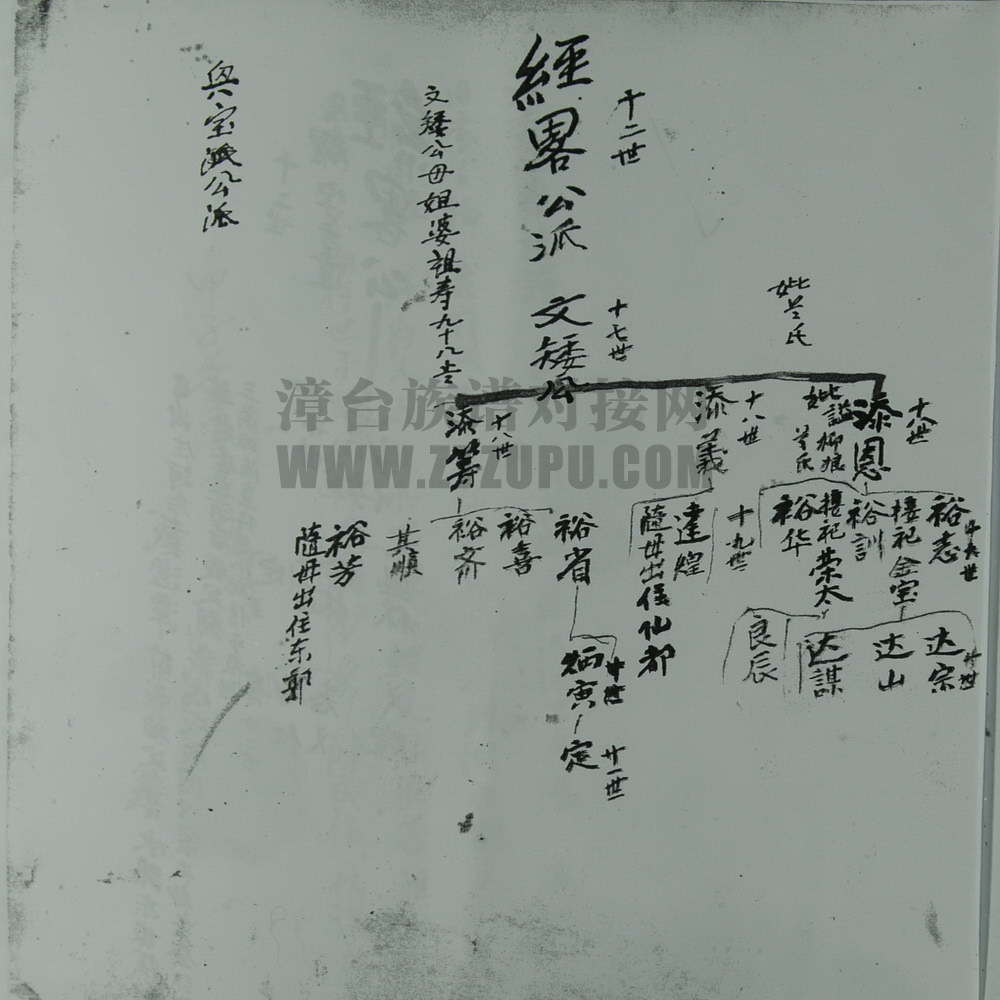 十二世
經畧公派 文矮公
十七世
妣㒷氏
文矮公母姐婆祖寿九十八吉
公派
添恩
十八世
妣謚柳娘
氏
添義
十八世
添筹
十八世
裕志
十九世
接祀金宝
裕訓
接祀荣太
裕华
十九世
達煌
隨母出侄仙都
裕省
裕喜
裕斎
其順
裕芳
隨母出住东郭
达宗
达山
达謀
良辰
炳寅
定
廿一世
漳台族谱对接网
WWW.ZTZUPU.COM